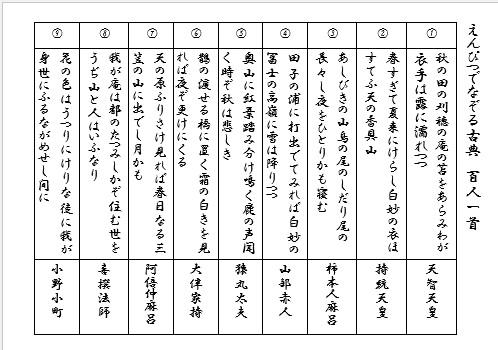 えんぴつでなぞる古典 百人一首
①
秋の田の刈穂の庵の苫をあらみわが
衣手は露に濡れつつ
天智天皇
②
春すぎて夏来にけらし白妙の衣ほ
すてふ天の香具山
持統天皇
③
あしびきの山鳥の尾のしだり尾の
長々し夜をひとりかも寝む
柿本人麻呂
④
田子の浦に打出でてみれば白妙の
冨士の高嶺に雪は降りつつ
山部赤人
⑤
奥山に紅葉踏み分け鳴く鹿の声聞
く時ぞ秋は悲しき
猿丸太夫
⑥
鵲の渡せる橋に置く霜の白きを見
れば夜ぞ更けにくる
大伴家持
⑦
天の原ふりさけ見れば春日なる三
笠の山に出でし月かも
阿倍仲麻呂
⑧
我が庵は都のたつみしかぞ住む世を
うぢ山と人はいふなり
喜撰法師
⑨
花の色はうつりにけりな徒に我が
身世にふるながめせし間に
小野小町